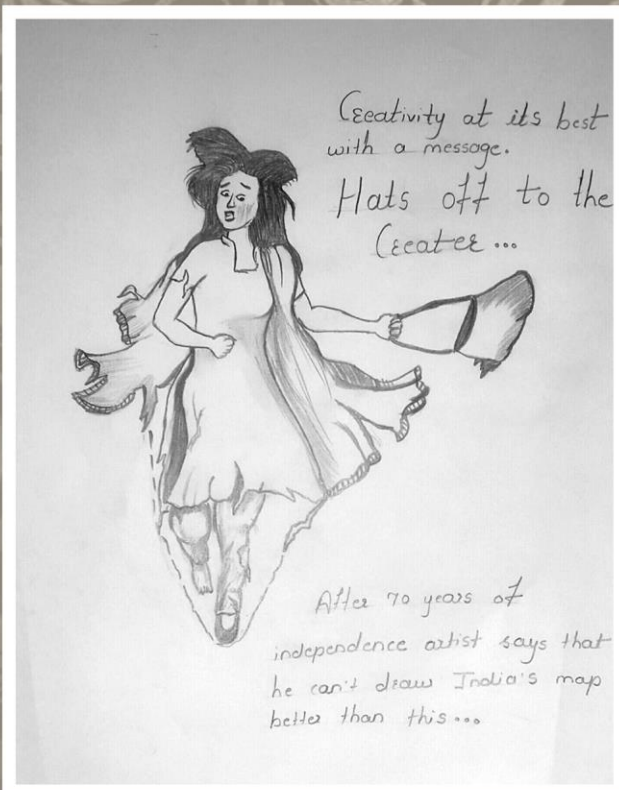 Creativity at its best
with a message.
Hats off to the
Creater...
After 70 years of
independence artist says that
he can't draw India's map
better than this...